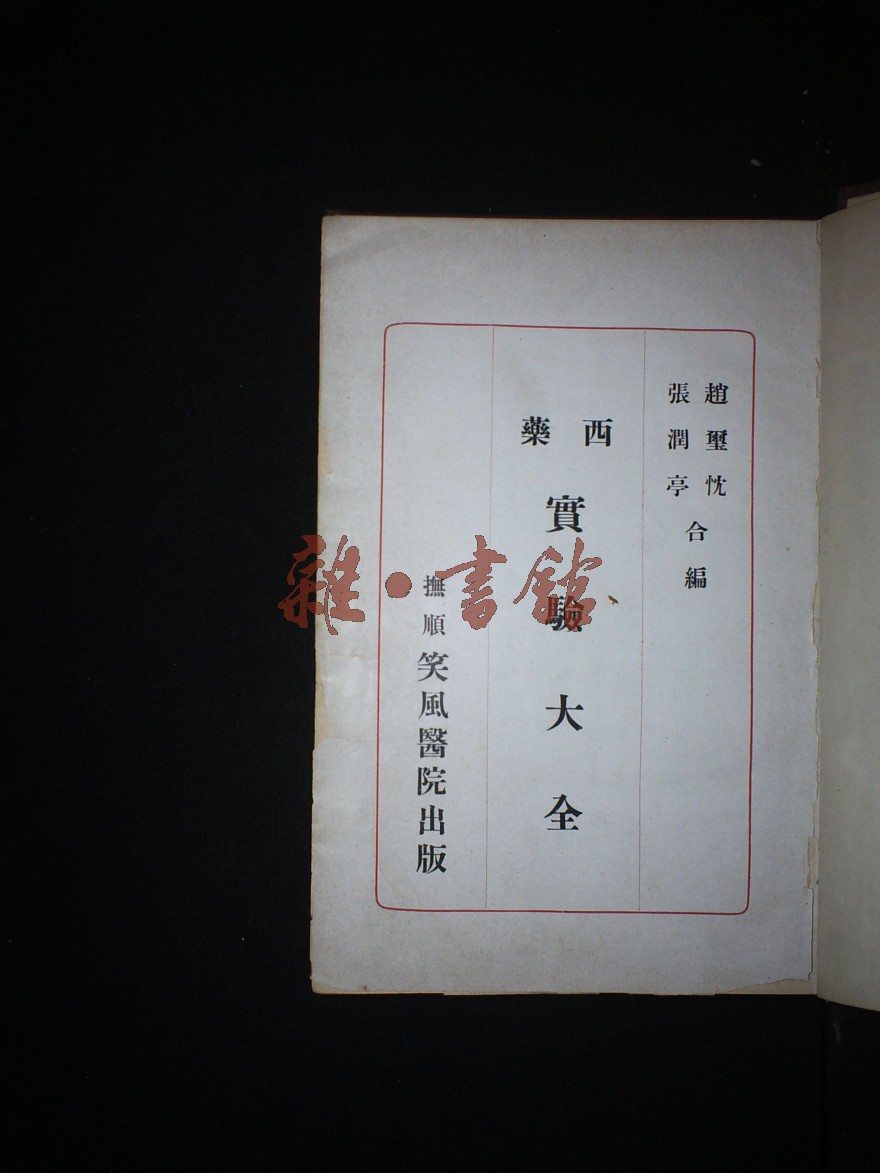 趙璽忱
張潤亭
合編
西藥
實驗大全
撫順笑風醫院出版
雜·書館